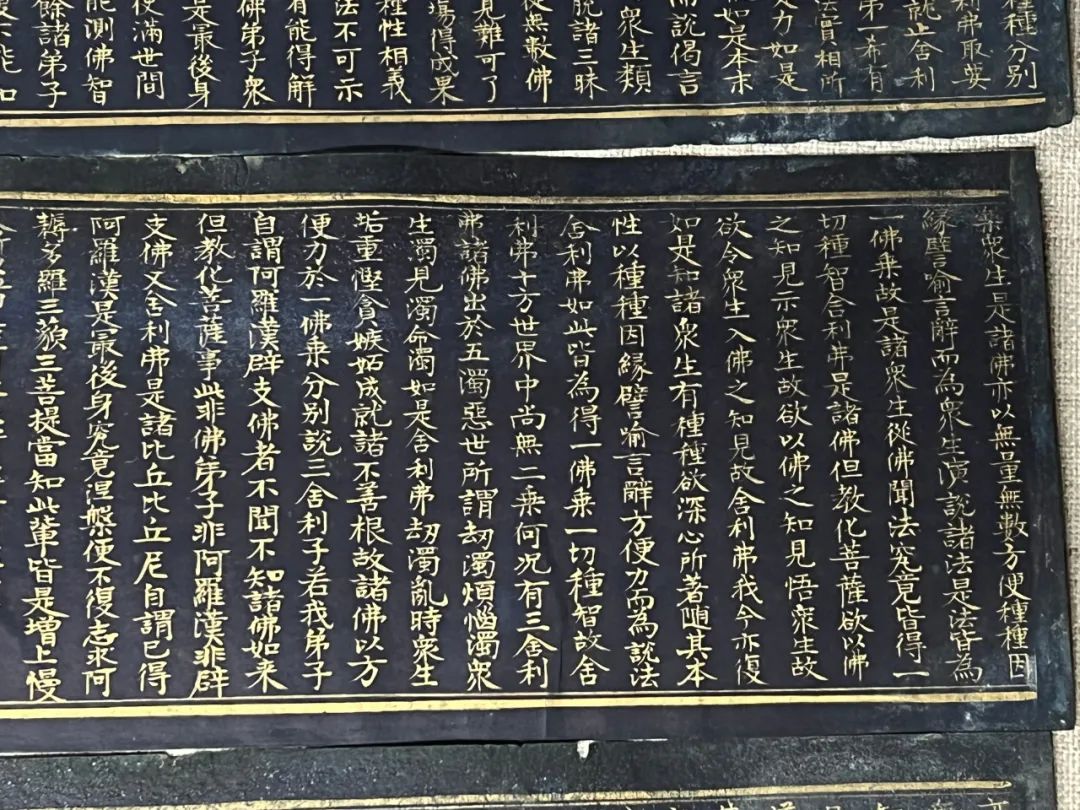 種種分別
利弗取要
就止舍利
第一希有
法實相所
力如是
如是本末
而說偈言
眾生類
脫諸三昧
從無數佛
見難可了
場得成果
種性相義
法不可示
有能得解
佛弟子眾
是最後身
使滿世間
能測佛智
餘諸弟子
不能知
樂眾生是諸佛亦以無量無數方便種種因
緣譬喻言辭而為眾生演說諸法是法皆為
一佛乘故是諸眾生從佛聞法究竟皆得一
切種智舍利弗是諸佛但教化菩薩欲以佛
之知見示眾生故欲以佛之知見悟眾生故
欲令眾生入佛之知見故舍利弗我今亦復
如是知諸眾生有種種欲深心所著隨其本
性以種種因緣譬喻言辭方便力而為說法
舍利弗如此皆為得一佛乘一切種智故舍
利弗十方世界中尚無二乘何況有三舍利
弗諸佛出於五濁惡世所謂劫濁煩惱濁眾
生濁見濁命濁如是舍利弗劫濁亂時眾生
垢重慳貪嫉妬成就諸不善根故諸佛以方
便力於一佛乘分別說三舍利子若我弟子
自謂阿羅漢辟支佛者不聞不知諸佛如來
但教化菩薩事此非佛弟子非阿羅漢非辟
支佛又舍利弗是諸比丘比丘尼自謂已得
阿羅漢是最後身究竟涅槃便不復志求阿
耨多羅三藐三菩提當知此輩皆是增上慢